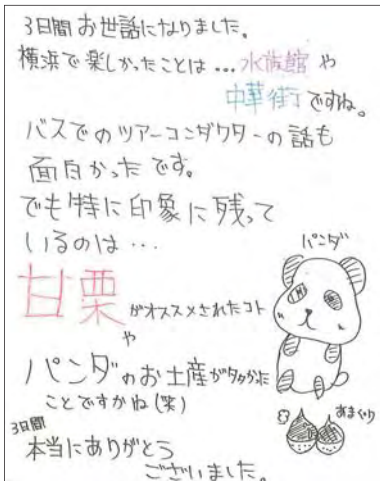 3日間お世話になりました。
横浜で楽しかったことは…水族館や
中華街ですね。
バスでのツアーコンダクターの話も
面白かったです。
でも特に印象に残って
いるのは…
パンダ
甘栗がオススメされたコト
や
パンダのお土産が多かった
ことですかね(笑)
あまぐり
3日間
本当にありがとう
ございました。